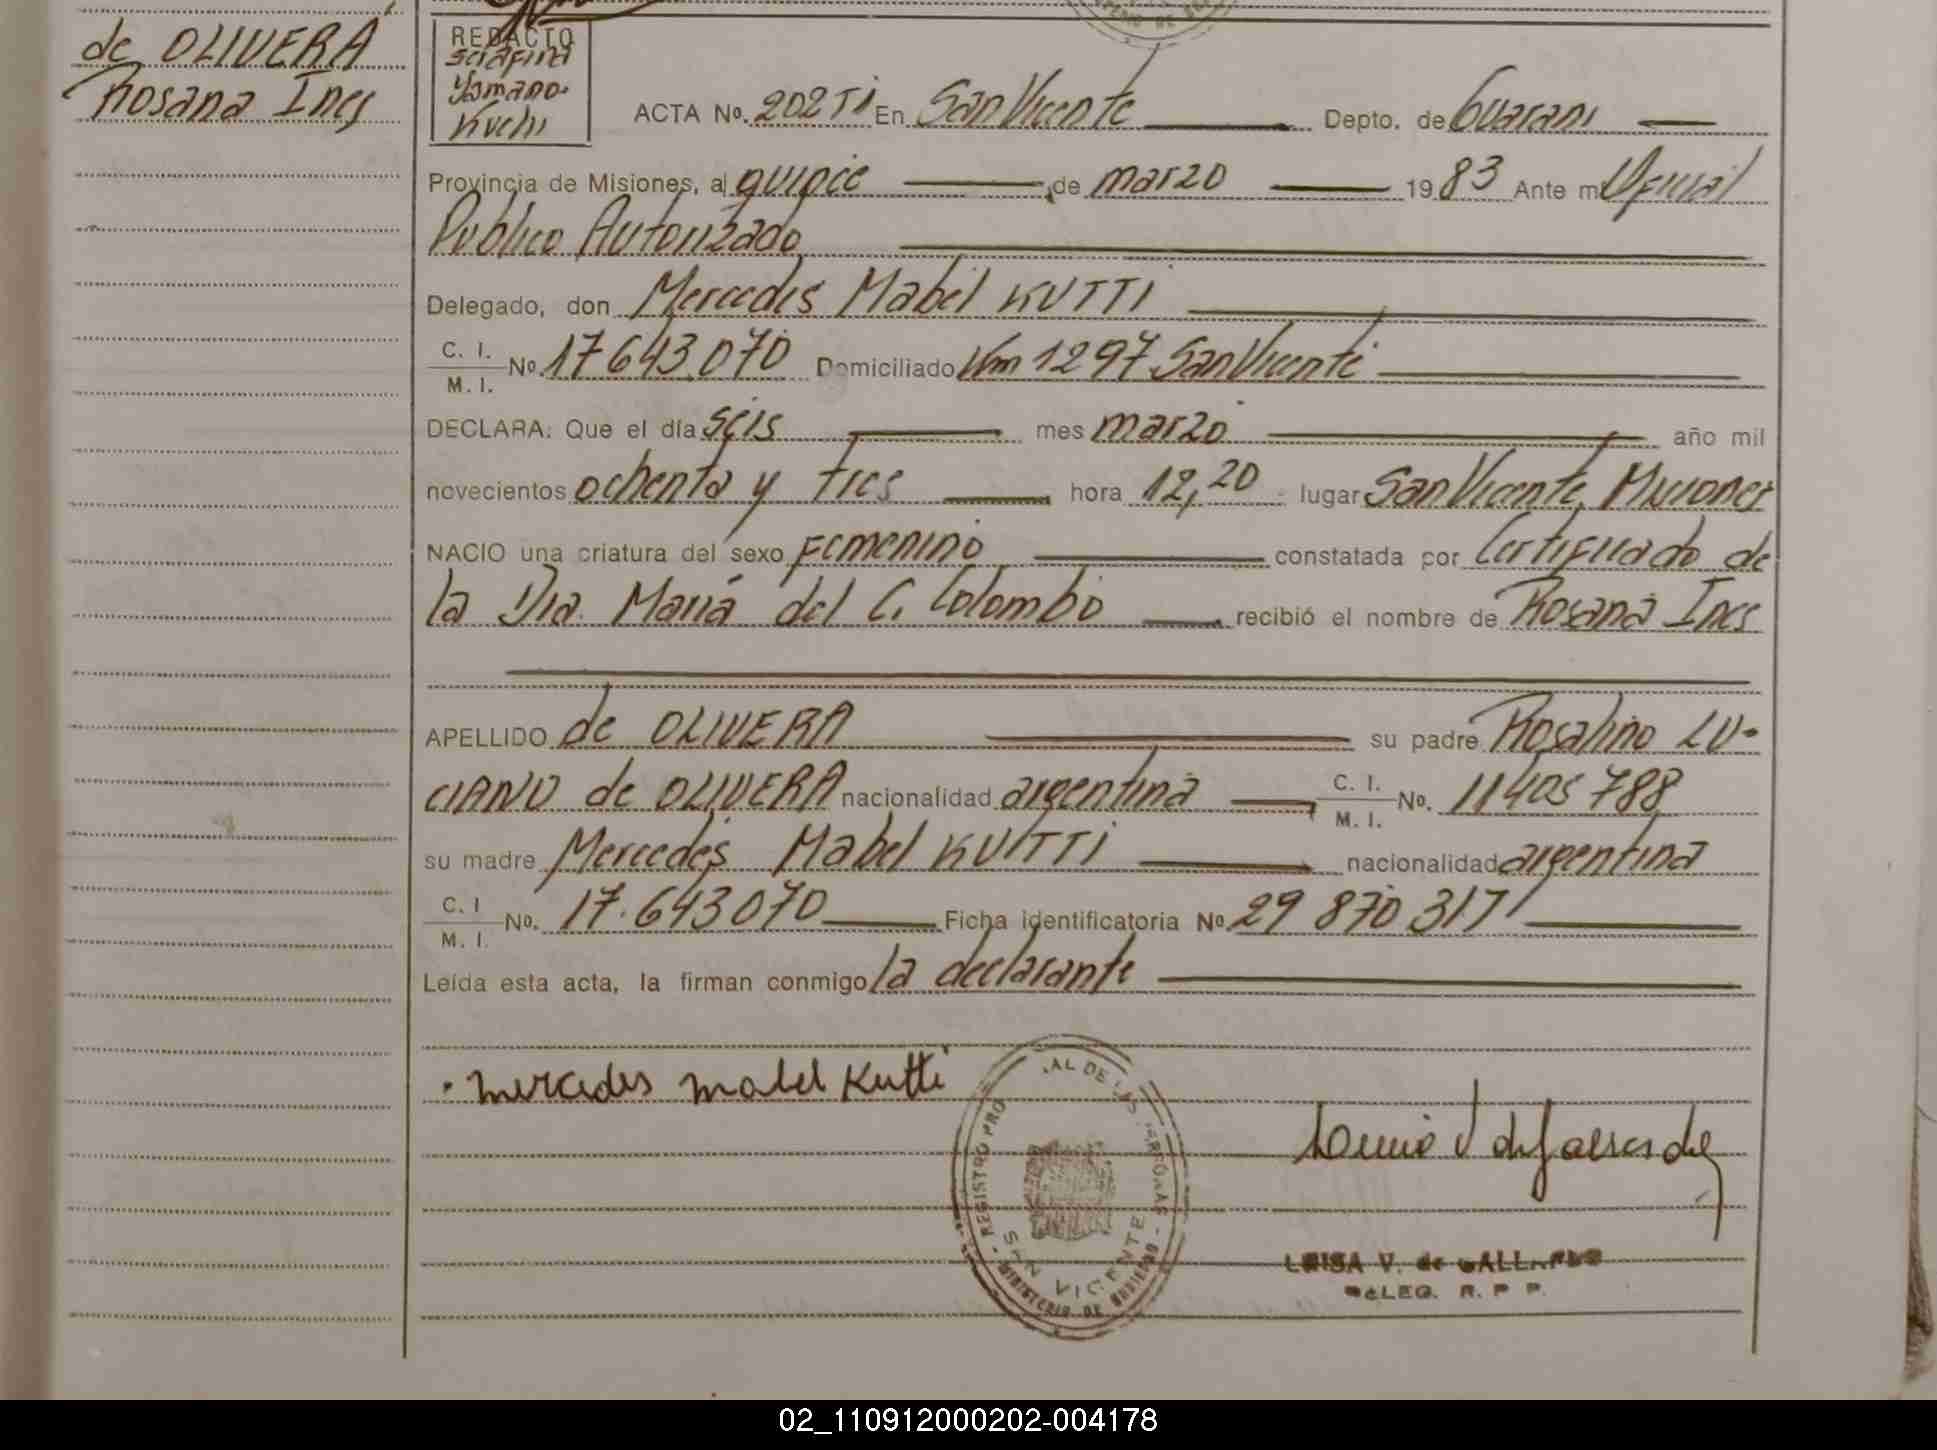 de OLIVERA
Rosana Ines
REDACTO
Serafina
Yamano-
Kuchi
ACTA No. 202 TI En San Vicente Depto. de Guarani
Provincia de Misiones, a quince de marzo 1983 Ante mi Oficial
Publico Autorizado
Delegado, don Mercedes Mabel KUTTI
C. I. M. I. No. 17643.070 Domiciliado Km 1297 San Vicente
DECLARA: Que el día seis mes marzo año mil
novecientos ochenta y tres hora 12,20 lugar San Vicente, Misiones
NACIO una criatura del sexo Femenino constatada por Certificado de
la Dra. María del C. Colombo recibió el nombre de Rosana Ines
APELLIDO de OLIVERA su padre Rosalino LU-
CIANO de OLIVERA nacionalidad argentina C. I. M. I. No. 11405788
su madre Mercedes Mabel KUTTI nacionalidad argentina
C. I. M. I. No. 17.643070 Ficha identificatoria No 29 870 317
Leída esta acta, la firman conmigo la declarante
Mercedes Mabel Kutti
REGISTRO PRO AL DE LAS PERSONAS
SAN VICENTE
MINISTERIO DE GOBIERNO
LUISA V. de GALLARDO
DELEG. R. P. P.
02_110912000202-004178